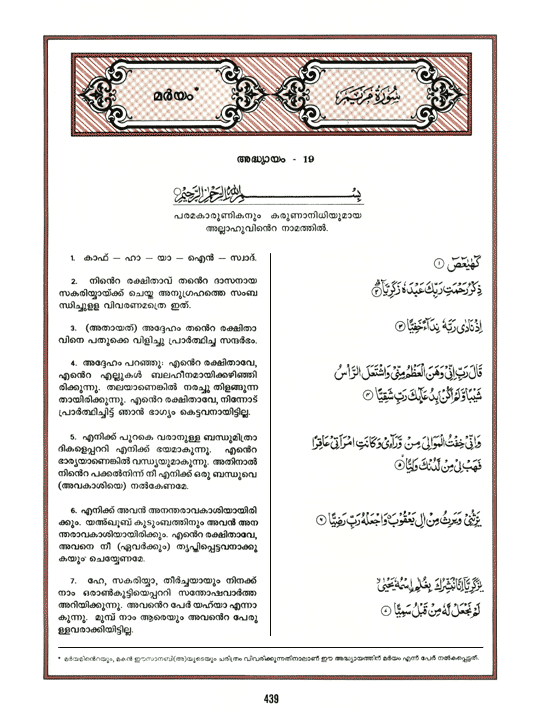 മർയം*
سُورَةُ مَرْيَمَ
അദ്ധ്യായം - 19
بِسْمِ اللَّهِ الرَّحْمَٰنِ الرَّحِيمِ
പരമകാരുണികനും കരുണാനിധിയുമായ
അല്ലാഹുവിൻെറ നാമത്തിൽ.
1. കാഫ് — ഹാ — യാ — ഐൻ — സ്വാദ്.
2. നിൻെറ രക്ഷിതാവ് തൻെറ ദാസനായ
സകരിയ്യായ്ക്ക് ചെയ്ത അനുഗ്രഹത്തെ സംബ
ന്ധിച്ചുളള വിവരണമത്രെ ഇത്.
3. (അതായത്) അദ്ദേഹം തൻെറ രക്ഷിതാ
വിനെ പതുക്കെ വിളിച്ചു പ്രാർത്ഥിച്ച സന്ദർഭം.
4. അദ്ദേഹം പറഞ്ഞു: എൻെറ രക്ഷിതാവേ,
എൻെറ എല്ലുകൾ ബലഹീനമായിക്കഴിഞ്ഞി
രിക്കുന്നു. തലയാണെങ്കിൽ നരച്ചു തിളങ്ങുന്ന
തായിരിക്കുന്നു. എൻെറ രക്ഷിതാവേ, നിന്നോട്
പ്രാർത്ഥിച്ചിട്ട് ഞാൻ ഭാഗ്യം കെട്ടവനായിട്ടില്ല.
5. എനിക്ക് പുറകെ വരാനുളള ബന്ധുമിത്രാ
ദികളെപ്പററി എനിക്ക് ഭയമാകുന്നു. എൻെറ
ഭാര്യയാണെങ്കിൽ വന്ധ്യയുമാകുന്നു. അതിനാൽ
നിൻെറ പക്കൽനിന്ന് നീ എനിക്ക് ഒരു ബന്ധുവെ
(അവകാശിയെ) നൽകേണമേ.
6. എനിക്ക് അവൻ അനന്തരാവകാശിയായിരി
ക്കും. യഅ്ഖൂബ് കുടുംബത്തിനും അവൻ അന
ന്തരാവകാശിയായിരിക്കും. എൻെറ രക്ഷിതാവേ,
അവനെ നീ (ഏവർക്കും) തൃപ്തിപ്പെട്ടവനാക്കു
കയും ചെയ്യേണമേ.
7. ഹേ, സകരിയ്യാ, തീർച്ചയായും നിനക്ക്
നാം ഒരാൺകുട്ടിയെപ്പററി സന്തോഷവാർത്ത
അറിയിക്കുന്നു. അവൻെറ പേർ യഹ്യാ എന്നാ
കുന്നു. മുമ്പ് നാം ആരെയും അവൻെറ പേരു
ളളവരാക്കിയിട്ടില്ല.
كهيعص ١
ذِكْرُ رَحْمَتِ رَبِّكَ عَبْدَهُ زَكَرِيَّا ٢
إِذْ نَادَى رَبَّهُ نِدَاءً خَفِيًّا ٣
قَالَ رَبِّ إِنِّي وَهَنَ الْعَظْمُ مِنِّي وَاشْتَعَلَ الرَّأْسُ
شَيْبًا وَلَمْ أَكُنْ بِدُعَائِكَ رَبِّ شَقِيًّا ٤
وَإِنِّي خِفْتُ الْمَوَالِيَ مِنْ وَرَاءِي وَكَانَتِ امْرَأَتِي عَاقِرًا
فَهَبْ لِي مِنْ لَدُنْكَ وَلِيًّا ٥
يَرِثُنِي وَيَرِثُ مِنْ آلِ يَعْقُوبَ وَاجْعَلْهُ رَبِّ رَضِيًّا ٦
يَا زَكَرِيَّا إِنَّا نُبَشِّرُكَ بِغُلَامٍ اسْمُهُ يَحْيَى
لَمْ نَجْعَلْ لَهُ مِنْ قَبْلُ سَمِيًّا ٧
* മർയമിൻെറയും, മകൻ ഈസാനബി(അ)യുടെയും ചരിത്രം വിവരിക്കുന്നതിനാലാണ് ഈ അദ്ധ്യായത്തിന് മർയം എന്ന് പേർ നൽകപ്പെട്ടത്.
439